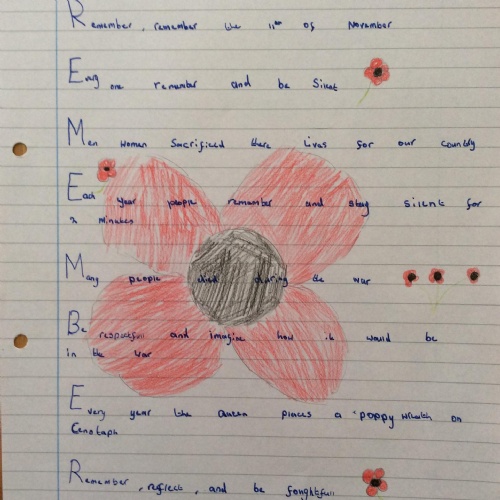 Remember, remember the 11th of November
Every one remember and be Silent
Men women Sacrificed there lives for our country
Each year people remember and stay silent for
2 minutes
Many people died during the war
Be respectfull and imagine how it would be
in the war
Every year the Queen places a poppy wreath on
Cenotaph
Remember, reflect, and be foughtfull